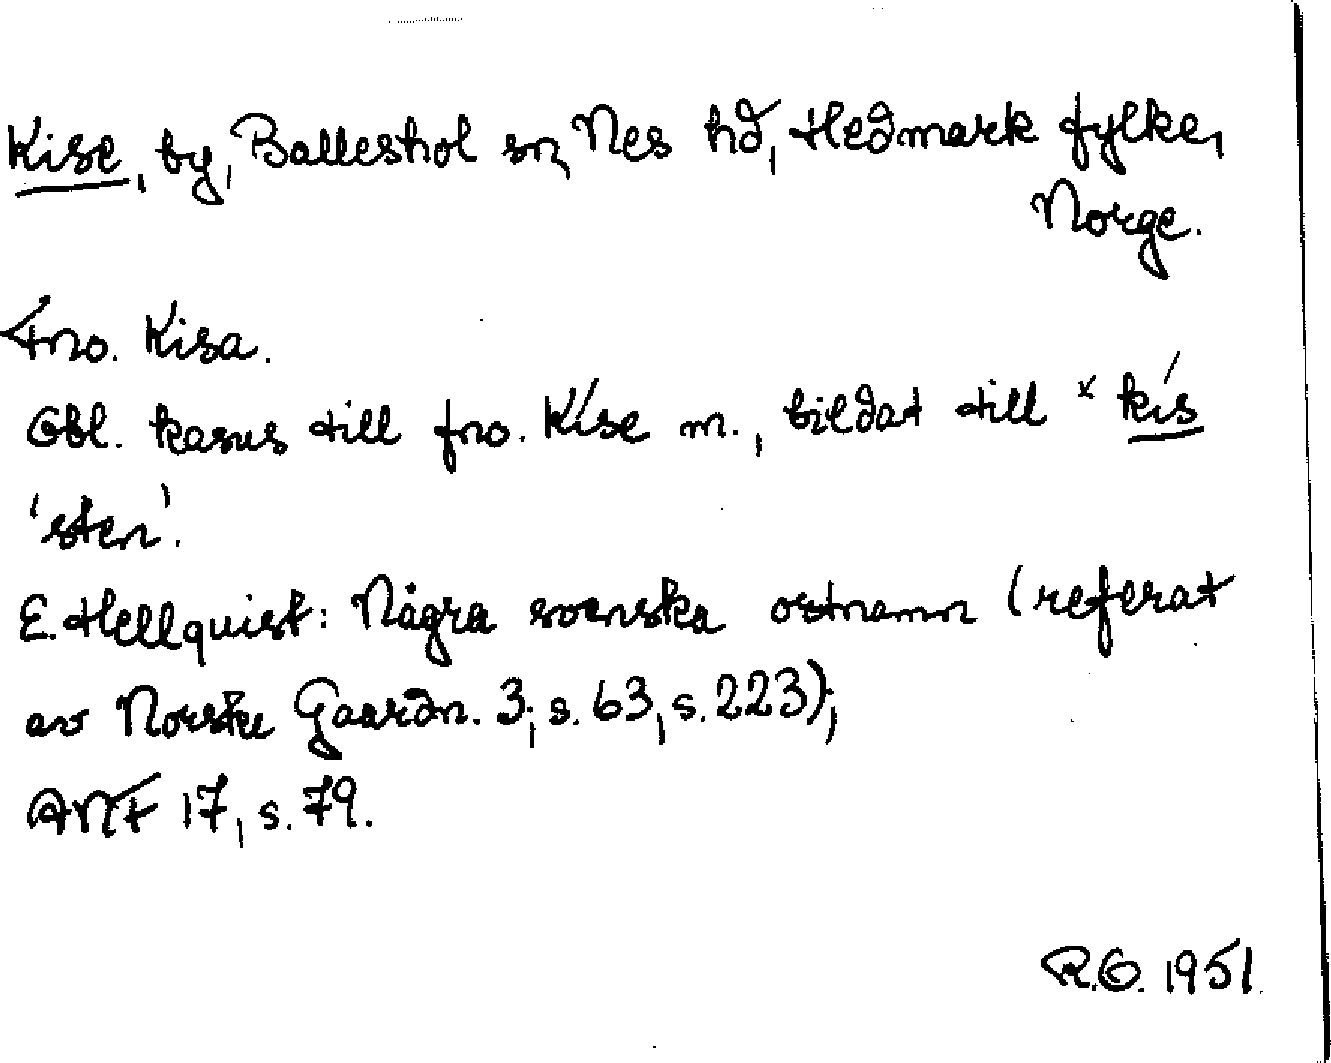 Kise, by, Balleshol sn, Nes hd, Hedmark fylke,
Norge.
Fno. Kisa.
Obl. kasus till fno. Kíse m., bildat till × kís
'sten'.
E. Hellquist: Några svenska ortnamn (referat
av Norske Gaardn. 3, s. 63, s. 223);
ANF 17, s. 79.
R.O. 1951.